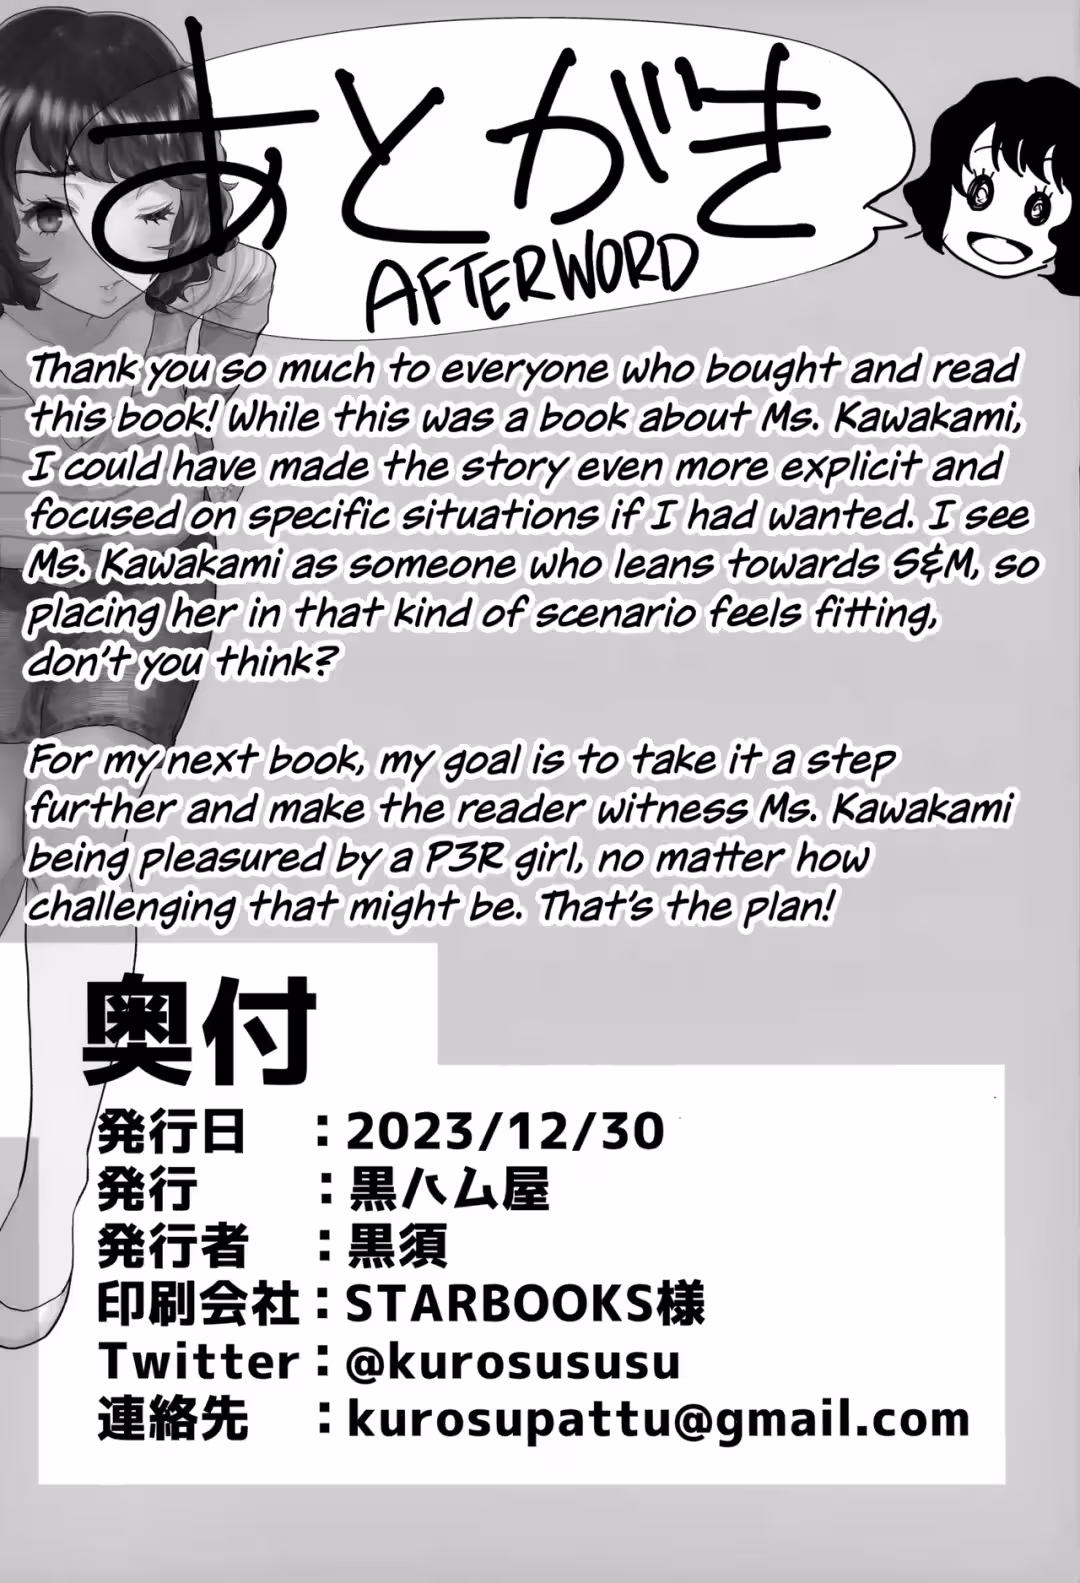 あとがき
AFTERWORD
Thank you so much to everyone who bought and read
this book! While this was a book about Ms. Kawakami,
I could have made the story even more explicit and
focused on specific situations if I had wanted. I see
Ms. Kawakami as someone who leans towards S&M, so
placing her in that kind of scenario feels fitting,
don't you think?
For my next book, my goal is to take it a step
further and make the reader witness Ms. Kawakami
being pleasured by a P3R girl, no matter how
challenging that might be. That's the plan!
奥付
発行日 :2023/12/30
発行 :黒ハム屋
発行者 :黒須
印刷会社:STARBOOKS様
Twitter:@kurosususu
連絡先 :kurosupattu@gmail.com